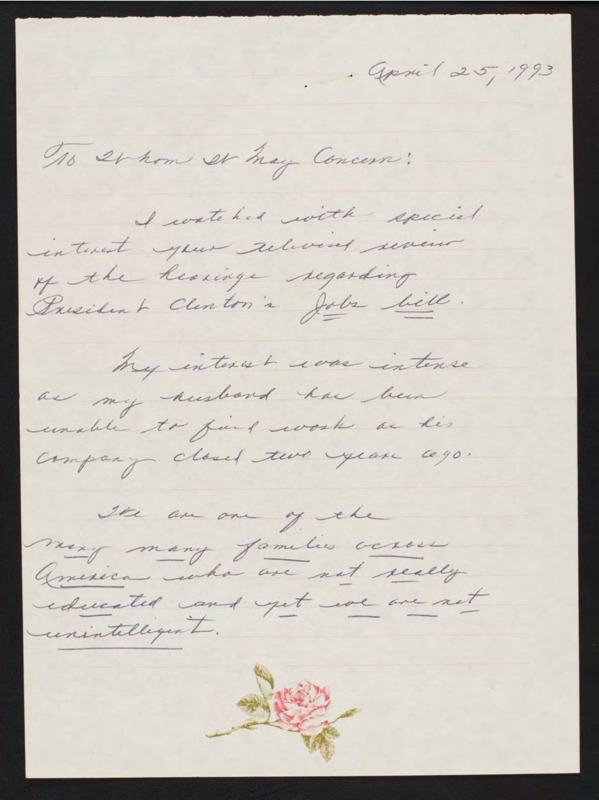 April 25, 1993
To Whom It May Concern:
I watched with special
interest your televised review
of the hearings regarding
President Clinton's Jobs bill.
My interest was intense
as my husband has been
unable to find work as his
company closed two years ago.
We are one of the
many many families across
America who are not really
educated and yet we are not
unintelligent.